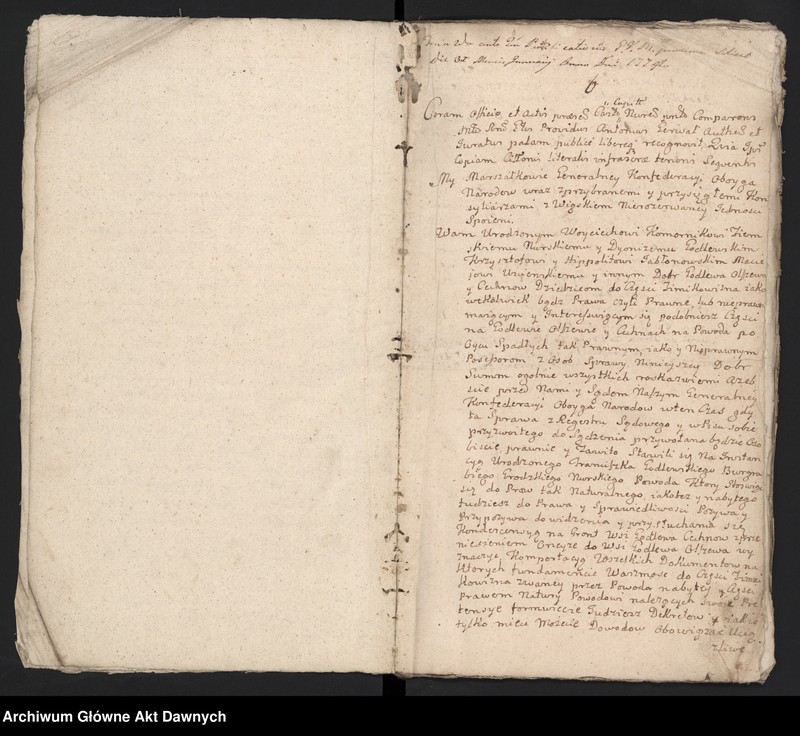 die 02 Mensis Januarij Anno Dni 1774
6
Coram Officio et Actis præsen Castr Nuren
Comparens
Providus Antonius Autheñ et
Juratus palam publice libereq recognovit Quia Ipse
Copiam Literalis infrascræ tenoris Sequentis
My Marszałkowie Generalney Konfederacyi Oboyga
Narodow wraz z przybranemi y przysięgłemi Kon
syliarzami z Węzłem Nierozerwaney Jedności
Spoieni.
Wam Urodzonym Woyciechowi Komornikowi Ziem
skiemu Nurskiemu y Dyonizemu Godlewskim
Krzysztofowi y Hippolitowi Jabłonowskim Macie
jowi y innym Dobr Godlewa Olszewa
y Cechnow Dziedzicom do Częsci Zimikowizna iako
wekolwiek bądz Prawa czyli Prawne, lub nieprawn
maiącym y Interessuiącym się podobniesz Częsci
na Godlewie Olszewie y Cechnach na Powoda po
Oycu Spadłych tak Prawnym, iako y Nieprawnym
Posessorom z Osob Sprawy Ninieyszey Dobr
Summ ogolnie wszystkich roskazuiemi Azeb
scie przed Nami y Sądem Naszym Generalney
Konfederacyi Oboyga Narodow w ten Czas gdy
ta Sprawa z Regestru Sądowego y wpisu sobie
przyzwoitego do Sądzenia przywołana będzie Oso
biscie prawnie y Zawito Stawili się Na Instan
cyą Urodzonego Franciszka Godlewskiego Burgra
biego Grodzkiego Nurskiego Powoda Ktory Stosuiąc
się do Praw tak Naturalnego, iako tez y nabytego
tudziesz do Prawa y Sprawiedliwosci Pozywa y
Przypozywa do widzenia y przysłuchania się
Kondescensyą na Gront Wsi Godlewa Cechnow z prze
niesieniem Oneyze do Wsi Godlewa Olszewa wy
znaczyć, Komportacyą Wszelkich Dokumentow na
Ktorych fundamencie Waszmose do Częsci Zimi
kowizna zwaney przez Powoda nabytey y Częsci
prawem Natury Powodowi nalezących Swoie Pre
tensye formuiecie Tudziesz Dekretow y iakie
tylko miec Mozecie Dowodow Obowiązac Ucią
zliwe